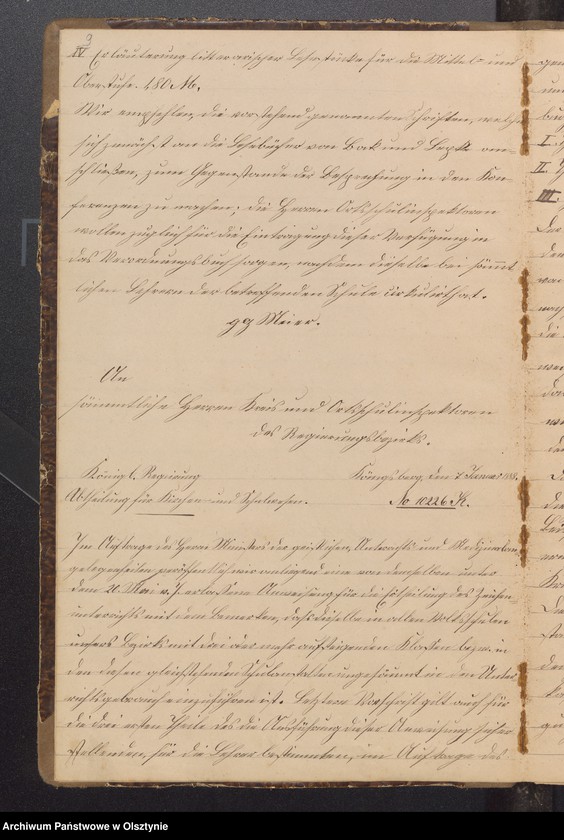 3
IV Erläuterung litterarischer Lesestücke für die Mittel- und
Oberstufe. 1,80 M.
Wir empfehlen, die vorstehend genannten Schriften, welche
sich zunächst an die Lesebücher von Bock und anschließen
schließen, zum Gegenstande der Besprechung in den Kon-
ferenzen zu machen; die Herren Ortsschulinspektoren
wollen zugleich für die Eintragung dieser Verfügung in
das Verordnungsbuch sorgen, nachdem dieselbe bei sämmt-
lichen Lehrern der betreffenden Schule cirkulirt hat.
gz Meier.
An
sämmtliche Herren Kreis und Ortsschulinspektoren
des Regierungsbezirks.
Königl. Regierung Königsberg, den 7. Januar
Abtheilung für Kirchen- und Schulwesen. No 10226 K.
Im Auftrage des Herrn Ministers der geistlichen, Unterrichts- und Medizinalan-
gelegenheiten wir anliegend eine von demselben unter
dem 20. Mai v. J. erlassene Anweisung für die Ertheilung des Zeichen-
unterrichts mit dem Bemerken, daß dieselbe in allen Volksschulen
unsers Bezirks mit drei oder mehr aufsteigenden Klassen bezw. in
den diesen gleichstehenden Schulanstalten ungesäumt in den Unter-
richtsgebrauch einzuführen ist. Letztere Vorschrift gilt auch für
die drei ersten Theile des die Ausführung dieser Anweisung sicher
stellenden, für die Lehrer bestimmten, im Auftrage des
Archiwum Państwowe w Olsztynie